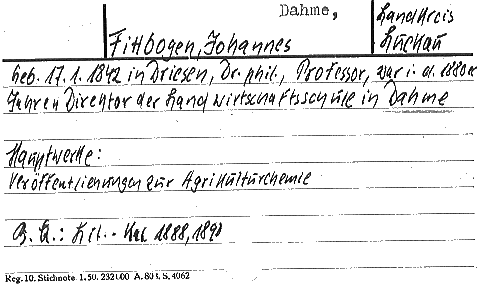 Dahme, Landkreis
Fittbogen, Johannes Luckau
Geb. 17.1.1842 in Driesen, Dr. phil., Professor, war i. d. 1880er
Jahren Direktor der Landwirtschaftsschule in Dahme
Hauptwerke:
Veröffentlichungen zur Agrikulturchemie
B. Qu.: Lit. 1888, 1890
Reg. 10. Stichnote 1. 50. 232100 A. 803. S. 4062